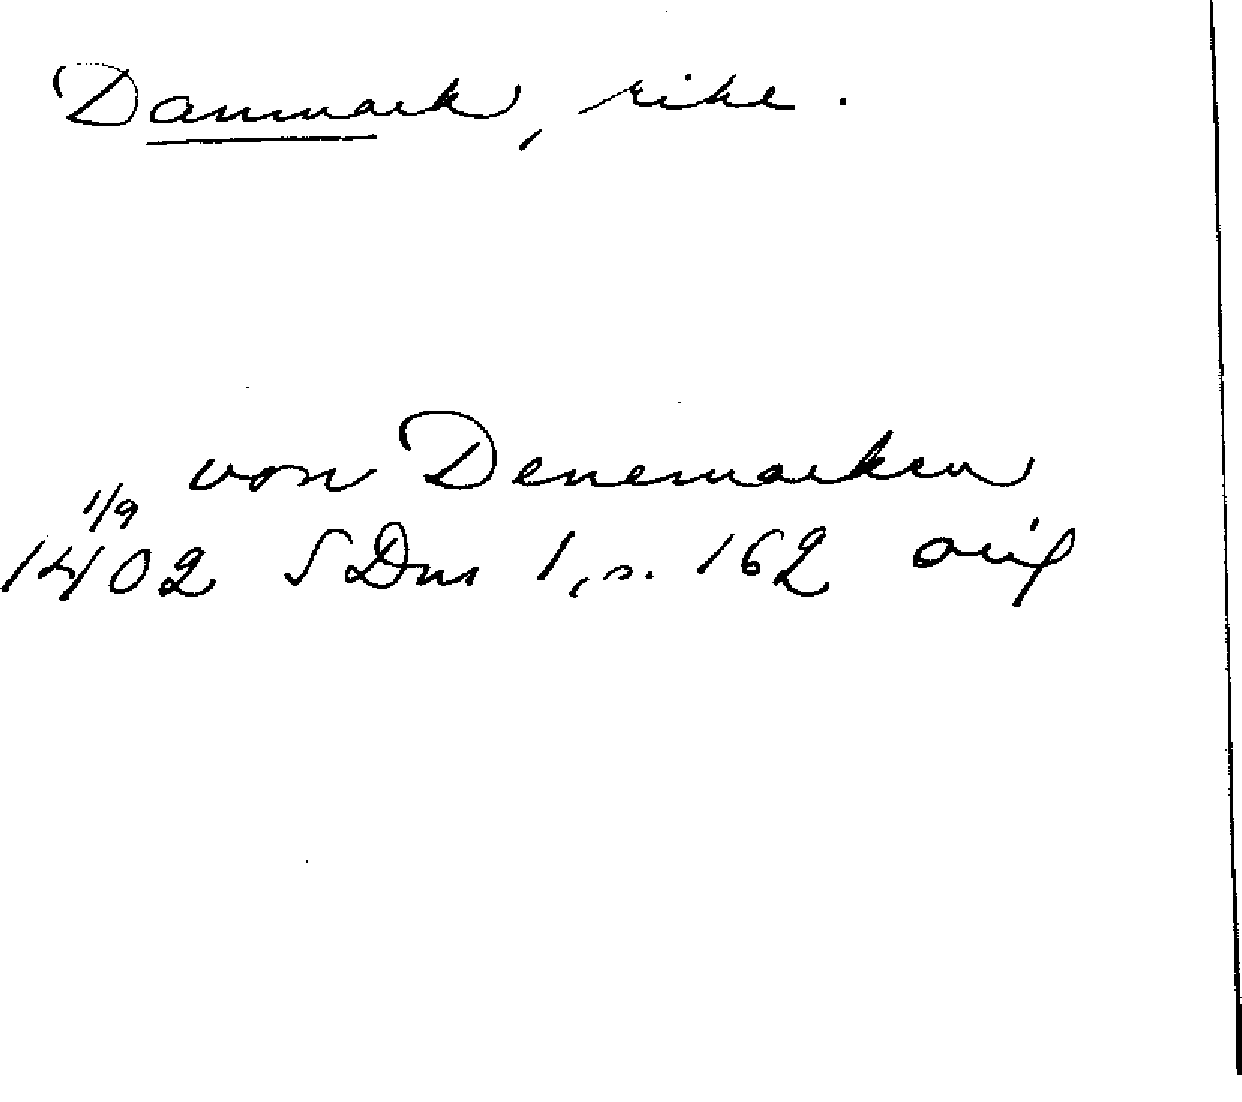 Danmark, rike.
von Denemarken
1/9
1402 SDns 1, s. 162 orig